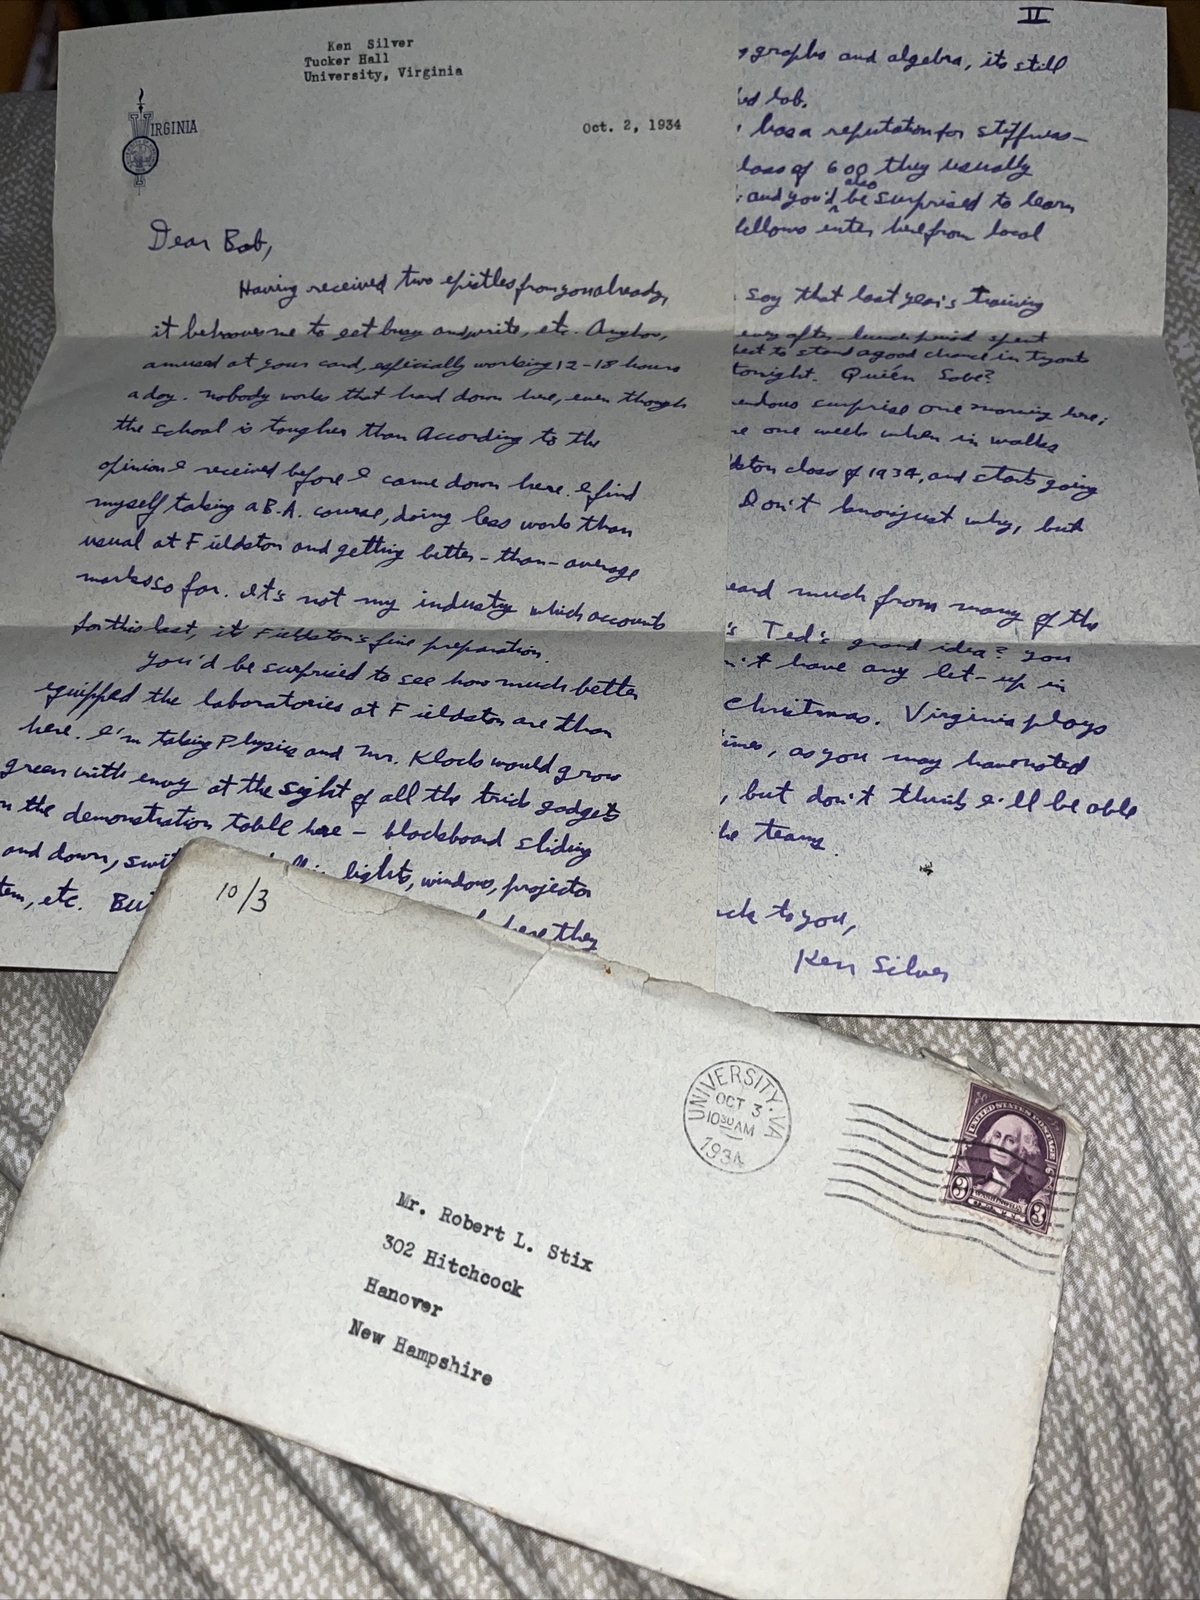 Ken Silver
Tucker Hall
University, Virginia
VIRGINIA
Oct. 2, 1934
Dear Bob,
Having received two epistles from you already,
it behooves me to get busy and write, etc. Anyhow,
amused at your card, especially working 12-18 hours
a day. Nobody works that hard down here, even though
the school is tougher than According to the
opinion I received before I came down here. I find
myself taking a B.A. course, doing less work than
usual at Fieldston and getting better-than-average
marks so far. It's not my industry which accounts
for this last, it Fieldston's fine preparation.
You'd be surprised to see how much better
equipped the laboratories at Fieldston are than
here. I'm taking Physics and Mr. Klock would grow
green with envy at the sight of all the trick gadgets
n the demonstration table here - blackboard sliding
and down, swit lights, windows, projector
tem, etc. But
here they
II
graphs and algebra, its still
lab.
has a reputation for stiffness-
lass of 600 they usually
; and you'd also be surprised to learn
fellows enter here from local
say that last year's training
every after-lunch period spent
to stand a good chance in tryouts
tonight. Quién Sabe?
endous surprise one morning here;
me one week when in walks
ldston class of 1934, and starts going
Don't know just why, but
eard much from many of the
's Ted's grand idea? You
n't have any let-up in
Christmas. Virginia plays
imes, as you may have noted
, but don't think I'll be able
he team.
uck to you,
Ken Silver
10/3
UNIVERSITY. VA
OCT 3
10 30 AM
1934
UNITED STATES POSTAGE
WASHINGTON
3 CENTS 3
Mr. Robert L. Stix
302 Hitchcock
Hanover
New Hampshire